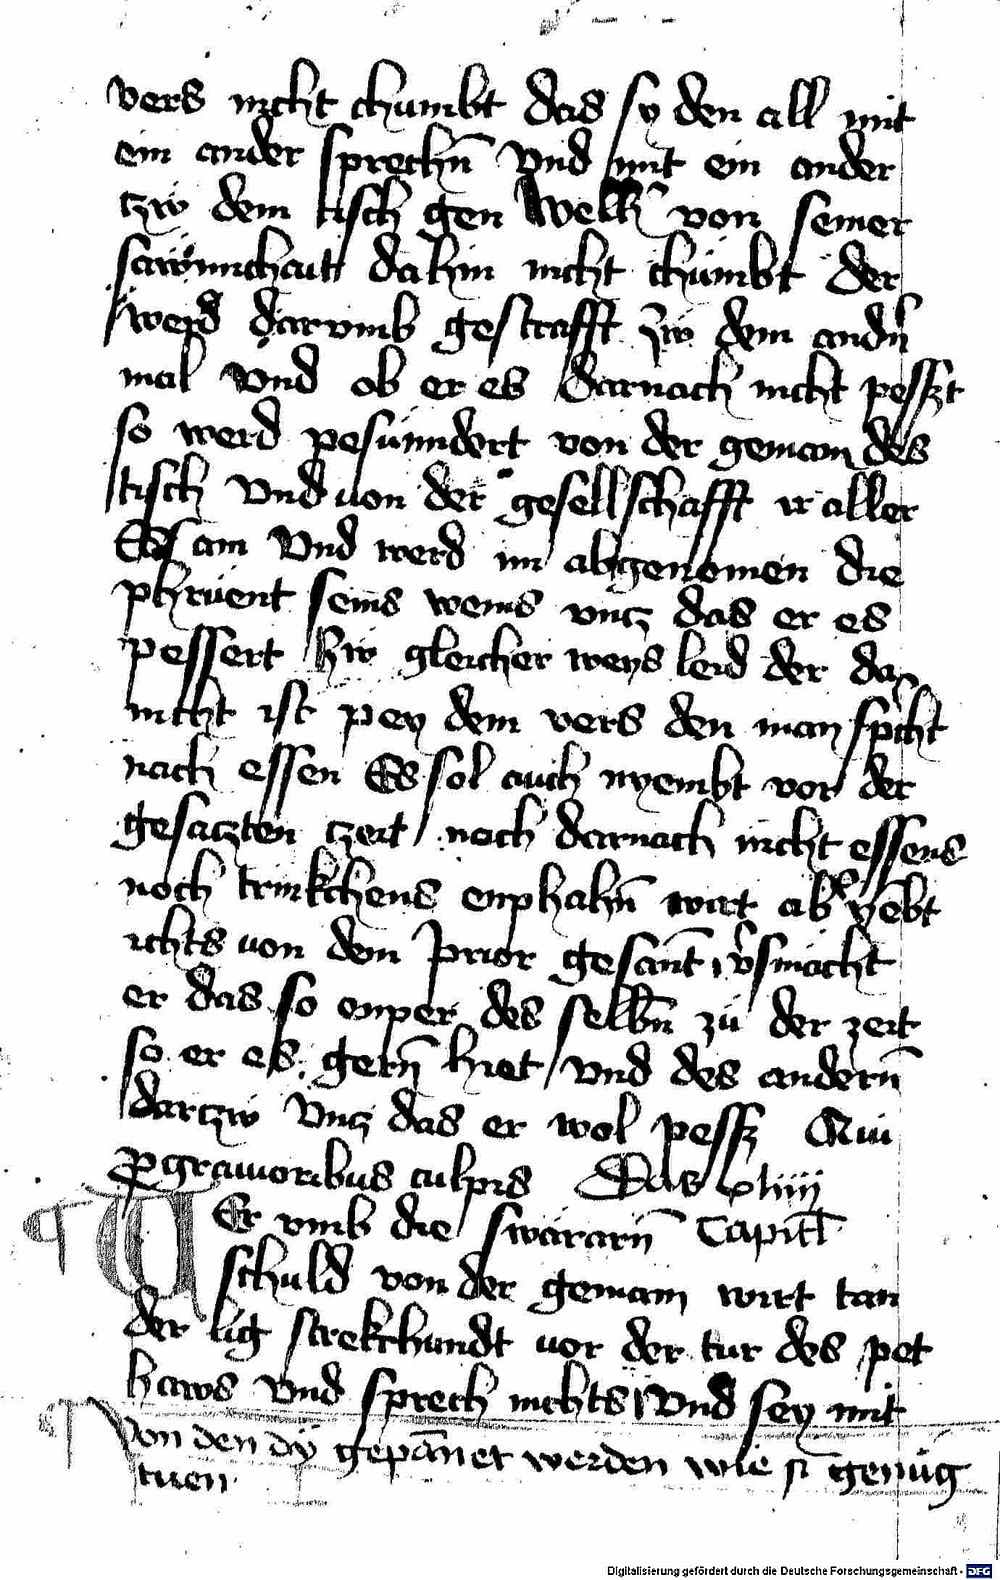 vers nicht chumbt das sy den all mit
ein ander sprechn̄ vnd mit ein ander
czw dem tisch gen welh̉ von seiner
sawmichait dahin nicht chümbt der
werd darvmb gestrafft zw dem andn̉
mal vnd ob er es darnach nicht pesszt
so werd pesunndert von der gemain des
tisch vnd von der gesellschafft ir aller
Es am vnd werd im abgenomen die
phrüent seins weins vncz das er es
pessert zw gleicher weys leid der da
nicht ist pey dem vers den man spͥcht
nach essen Es sol auch nyembt vor der
gesaczten czeit noch darnach nicht essens
noch trinkchens enphahn̄ wirt ab̉ yēbt
ichts von dem prior gesānt v̉smächt
er das so enper des selbn̄ zü der zeit
so er es gern̄ hiet vnd des andern̄
darczw vncz das er wol pessz Qui
ꝓ grauioribus culpis Das xliiij
Er vmb die swärarn̄ Capitl̄
schuld von der gemain wirt tan
der lig strekchundt vor der tur des pet
haws vnd sprech nichts vnd sey mit
Von den dÿ gepān̄et werden wie si genüg
tuen
Digitalisierung gefördert durch die Deutsche Forschungsgemeinschaft - DFG